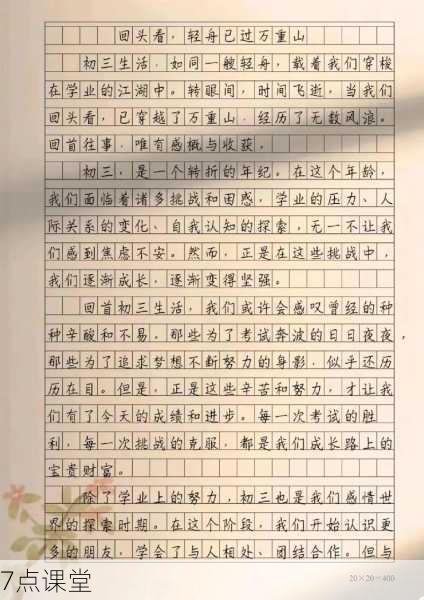 回头看，轻舟已过万重山
初三生活，如同一艘轻舟，载着我们穿梭
在学业的江湖中。转眼间，时间飞逝，当我们
回头看，已穿越了万重山，经历了无数风浪。
回首往事，唯有感概与收获。
初三，是一个转折的年纪。在这个年龄，
我们面临着诸多挑战和困惑，学业的压力、人
际关系的变化、自我认知的探索，无一不让我
们感到焦虑不安。然而，正是在这些挑战中，
我们逐渐成长，逐渐变得坚强。
回首初三生活，我们或许会感叹曾经的种
种辛酸和不易。那些为了考试奔波的日日夜夜，
那些为了追求梦想不断努力的身影，似乎还历
历在目。但是，正是这些辛苦和努力，才让我
们有了今天的成绩和进步。每一次考试的胜
利，每一次挑战的克服，都是我们成长路上的
宝贵财富。
除了学业上的努力，初三也是我们感情世
界的探索时期。在这个阶段，我们开始认识更
多的朋友，学会了与人相处、团结合作。但与
7点课堂
20×20=400